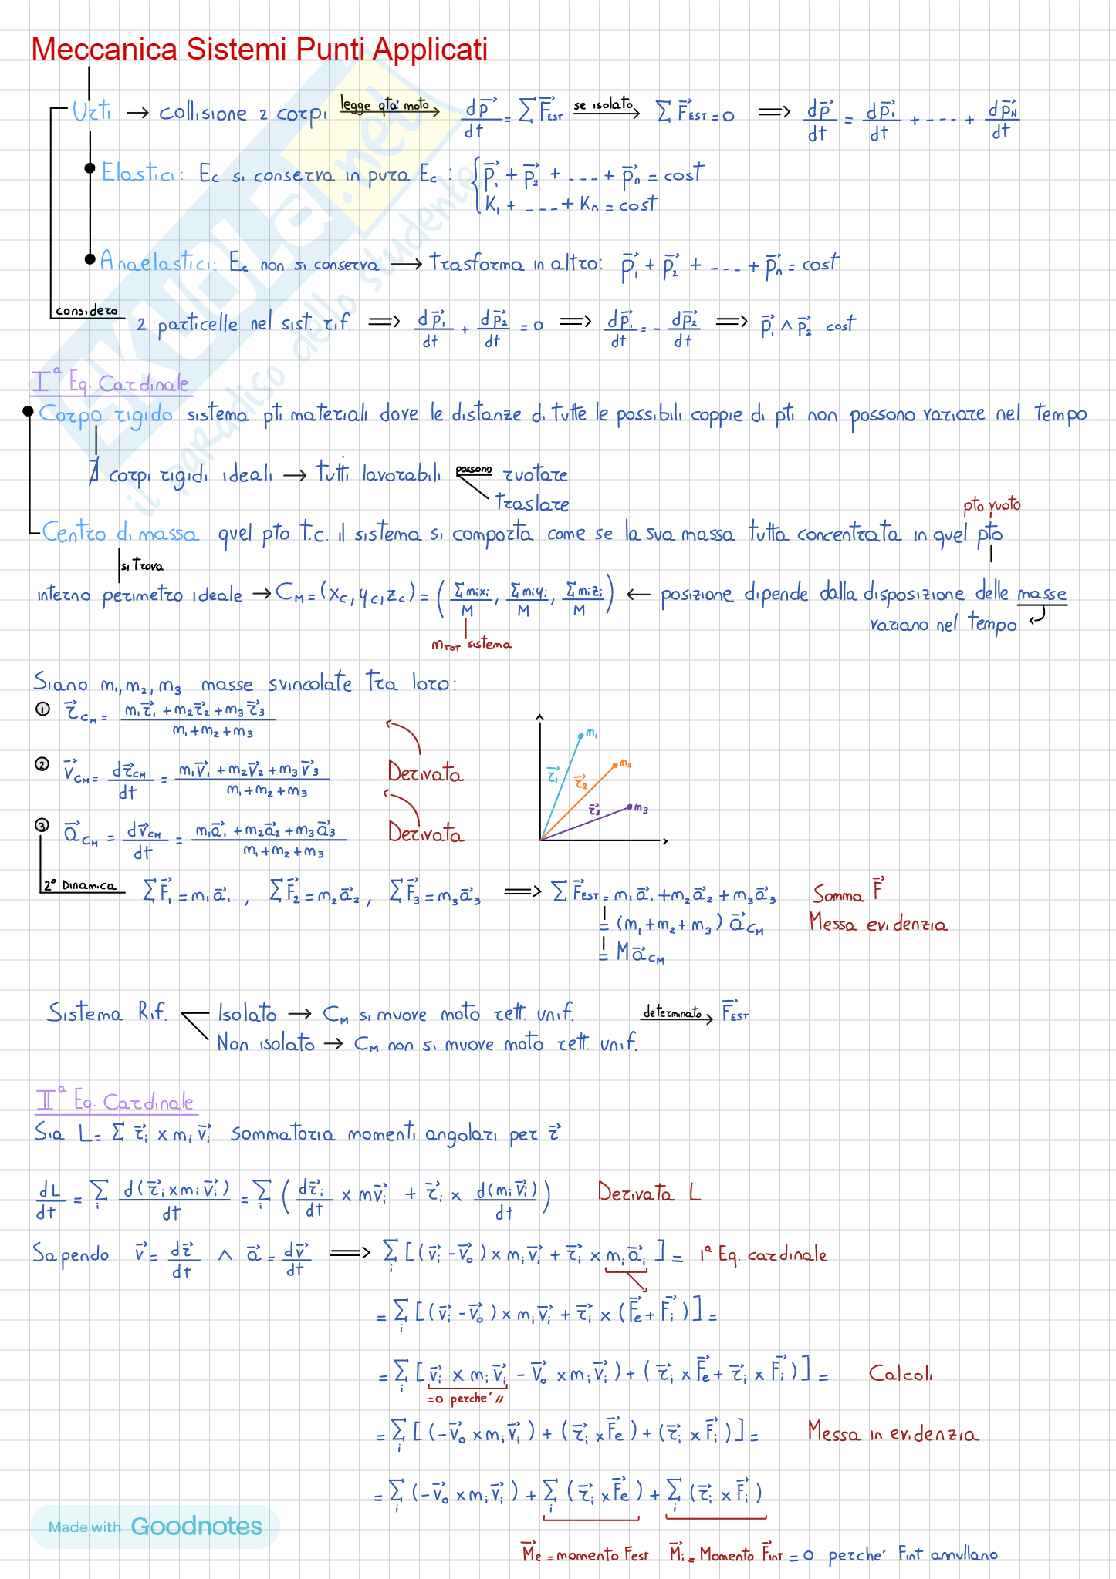 Meccanica Sistemi Punti Applicati
Urti → collisione 2 corpi legge qta' moto → dp⃗/dt = ∑F⃗EST se isolato → ∑F⃗EST = 0 ⟹ dp⃗/dt = dp⃗₁/dt + ---- + dp⃗N/dt
Elastici: Ec si conserva in pura Ec : { p⃗₁ + p⃗₂ + ---- + p⃗n = cost
K₁ + ---- + Kn = cost
Anaelastici: Ec non si conserva → trasforma in altro: p⃗₁ + p⃗₂ + --- + p⃗n = cost
considero 2 particelle nel sist. rif ⟹ dp⃗₁/dt + dp⃗₂/dt = 0 ⟹ dp⃗₁/dt = - dp⃗₂/dt ⟹ p⃗₁ ∧ p⃗₂ cost
Iª Eq. Cardinale
Corpo rigido sistema pti materiali dove le distanze di tutte le possibili coppie di pti non possono variare nel tempo
∄ corpi rigidi ideali → tutti lavorabili possono ruotare
traslare
pto vuoto
Centro di massa quel pto t.c. il sistema si comporta come se la sua massa tutta concentrata in quel pto
si trova
interno perimetro ideale → CM = (xc, yc, zc) = (∑mixi/M, ∑miyi/M, ∑mizi/M) ← posizione dipende dalla disposizione delle masse
variano nel tempo
mTOT sistema
Siano m₁, m₂, m₃ masse svincolate tra loro:
① r⃗CM = m₁r⃗₁ + m₂r⃗₂ + m₃r⃗₃ / m₁ + m₂ + m₃
② v⃗CM = dr⃗CM/dt = m₁v⃗₁ + m₂v⃗₂ + m₃v⃗₃ / m₁ + m₂ + m₃ Derivata
③ a⃗CM = dv⃗CM/dt = m₁a⃗₁ + m₂a⃗₂ + m₃a⃗₃ / m₁ + m₂ + m₃ Derivata
m₁
r⃗₁
r⃗₂
r⃗₃ m₃
2ª Dinamica ∑F⃗₁ = m₁a⃗₁ , ∑F⃗₂ = m₂a⃗₂ , ∑F⃗₃ = m₃a⃗₃ ⟹ ∑F⃗EST = m₁a⃗₁ + m₂a⃗₂ + m₃a⃗₃ Somma F⃗
= (m₁ + m₂ + m₃) a⃗CM Messa evidenzia
= Ma⃗CM
Sistema Rif. Isolato → CM si muove moto rett. unif. determinato → F⃗EST
Non isolato → CM non si muove moto rett. unif.
IIª Eq. Cardinale
Sia L = ∑ r⃗i × miv⃗i sommatoria momenti angolari per r⃗
dL/dt = ∑i d(r⃗i × miv⃗i)/dt = ∑i (dr⃗i/dt × mv⃗i + r⃗i × d(miv⃗i)/dt) Derivata L
Sapendo v⃗ = dr⃗/dt ∧ a⃗ = dv⃗/dt ⟹ ∑i [(v⃗i - v⃗o) × miv⃗i + r⃗i × mia⃗i] = 1ª Eq. cardinale
= ∑i [(v⃗i - v⃗o) × miv⃗i + r⃗i × (F⃗e + F⃗i)] =
= ∑i [v⃗i × miv⃗i - v⃗o × miv⃗i) + (r⃗i × F⃗e + r⃗i × F⃗i)] = Calcoli
= 0 perche' //
= ∑i [(-v⃗o × miv⃗i) + (r⃗i × F⃗e) + (r⃗i × F⃗i)] = Messa in evidenzia
= ∑i (-v⃗o × miv⃗i) + ∑i (r⃗i × F⃗e) + ∑i (r⃗i × F⃗i)
M⃗e = momento Fest M⃗i = Momento F⃗int = 0 perche' Fint annullano
Made with Goodnotes
SKUOLA.net
il paradiso dello studente